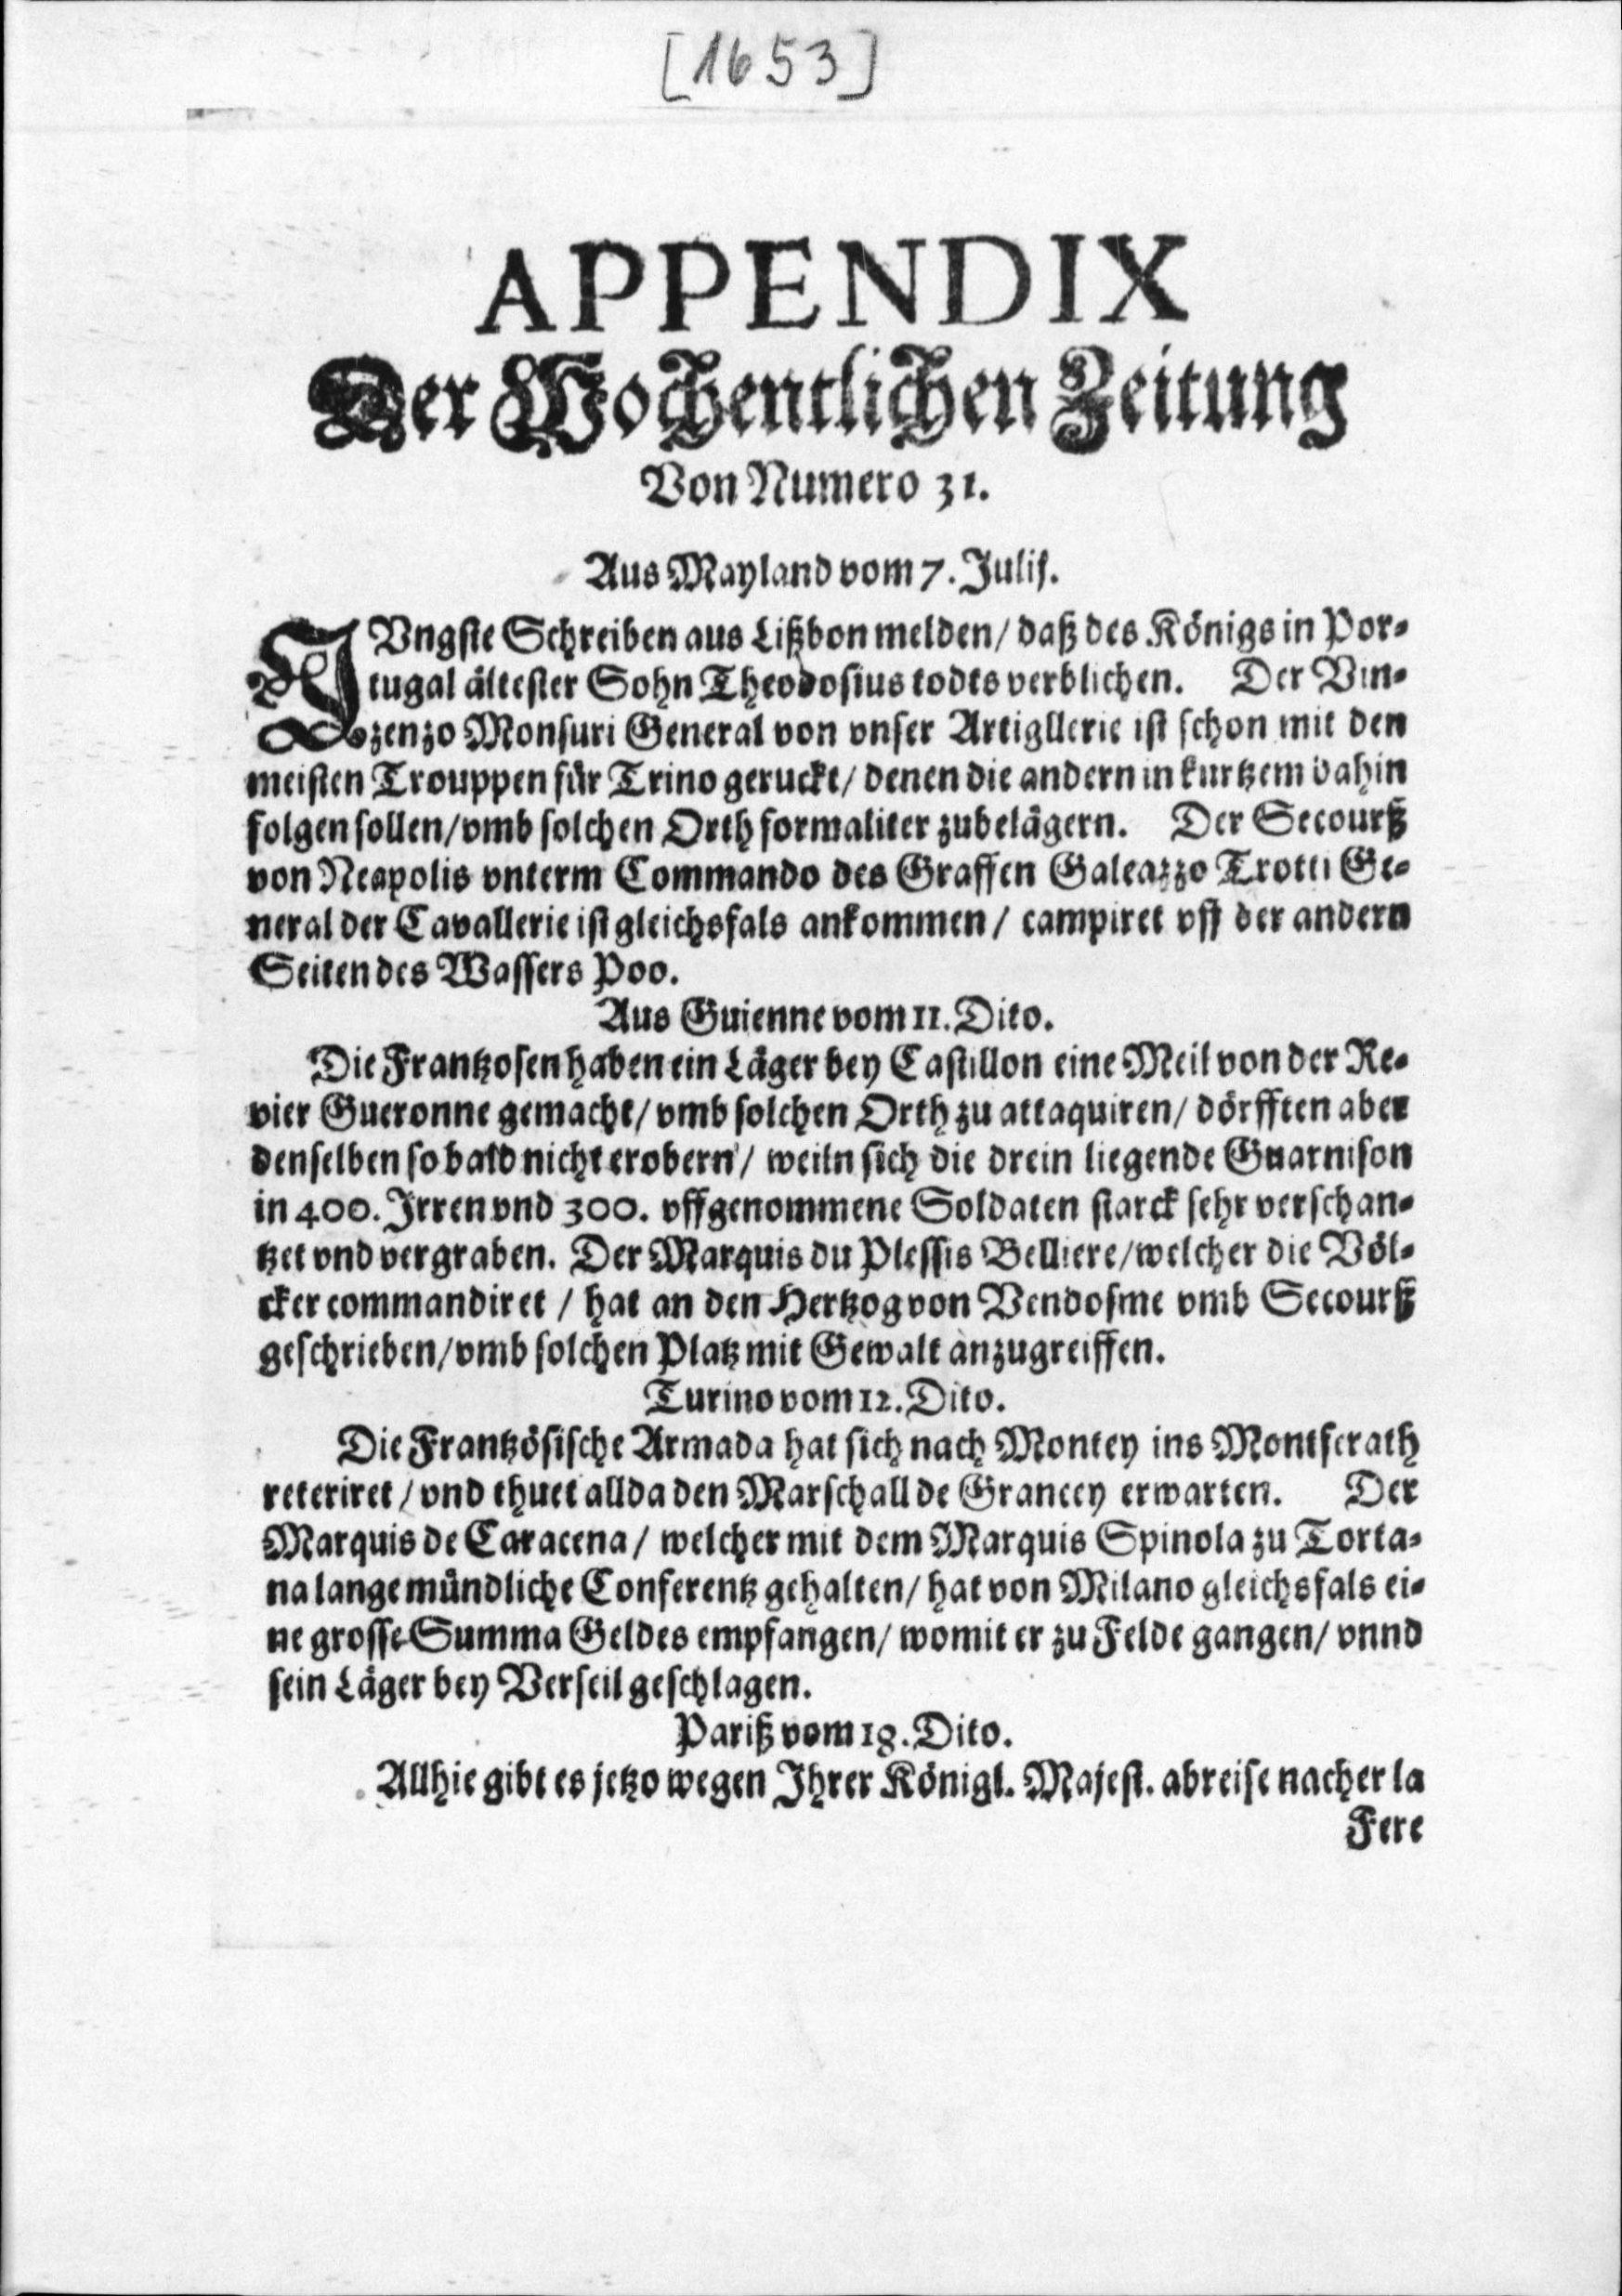 [1653]
APPENDIX
Der Wochentlichen Zeitung
Von Numero 31.
Aus Mayland vom 7. Julij.
JVngste Schreiben aus Lißbon melden / daß des Königs in Por-
tugal ältester Sohn Theodosius todts verblichen. Der Vin-
zenzo Monsuri General von vnser Artigllerie ist schon mit den
meisten Trouppen für Trino geruckt / denen die andern in kurtzem dahin
folgen sollen / vmb solchen Orth formaliter zubelägern. Der Secourß
von Neapolis vnterm Commando des Graffen Galeazzo Trotti Ge-
neral der Cavallerie ist gleichsfals ankommen / campiret vff der andern
Seiten des Wassers Poo.
Aus Guienne vom 11. Dito.
Die Frantzosen haben ein Läger bey Castillon eine Meil von der Re-
vier Gueronne gemacht / vmb solchen Orth zu attaquiren / dörfften aber
denselben so bald nicht erobern / weiln sich die drein liegende Guarnison
in 400. Irren vnd 300. vffgenommene Soldaten starck sehr verschan-
tzet vnd vergraben. Der Marquis du Plessis Belliere / welcher die Völ-
cker commandiret / hat an den Hertzog von Vendosme vmb Secourß
geschrieben / vmb solchen Platz mit Gewalt anzugreiffen.
Turino vom 12. Dito.
Die Frantzösische Armada hat sich nach Montey ins Montferath
reteriret / vnd thuet allda den Marschall de Grancey erwarten. Der
Marquis de Caracena / welcher mit dem Marquis Spinola zu Torta-
na lange mündliche Conferentz gehalten / hat von Milano gleichsfals ei-
ne grosse Summa Geldes empfangen / womit er zu Felde gangen / vnnd
sein Läger bey Verseil geschlagen.
Pariß vom 18. Dito.
Allhie gibt es jetzo wegen Ihrer Königl. Majest. abreise nacher la
Fere